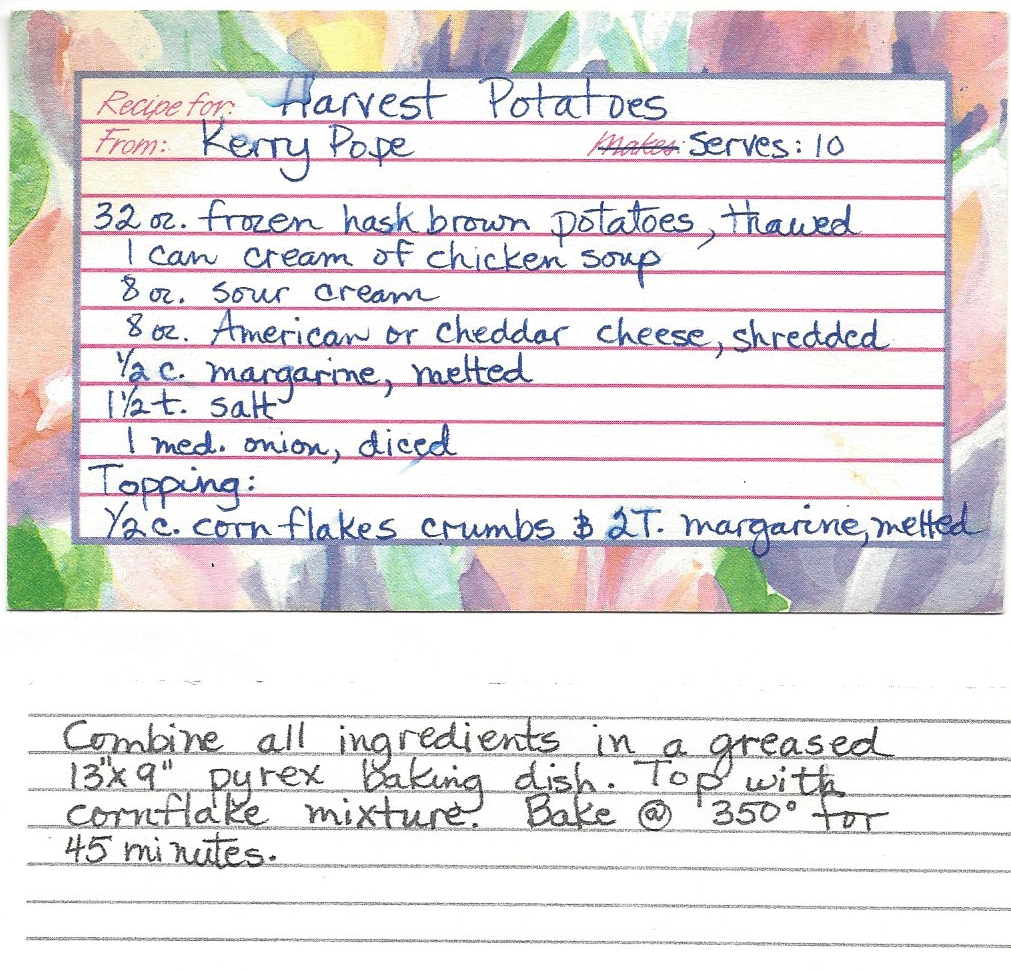 Recipe for: Harvest Potatoes
From: Kerry Pope Makes: Serves: 10
32 oz. frozen hask brown potatoes, thawed
1 can cream of chicken soup
8 oz. sour cream
8 oz. American or cheddar cheese, shredded
1/2 c. margarine, melted
1 1/2 t. salt
1 med. onion, diced
Topping:
1/2 c. corn flakes crumbs & 2T. margarine, melted
Combine all ingredients in a greased
13"x 9" pyrex baking dish. Top with
cornflake mixture. Bake @ 350° for
45 minutes.